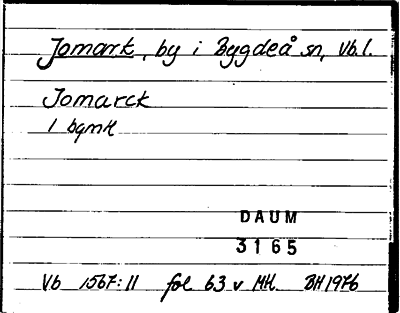 Jomark, by i Bygdeå sn, Vb.l.
Jomarck
1 bgmk
DAUM
3165
Vb 1567:11 fol 63 v MH. BH 1976